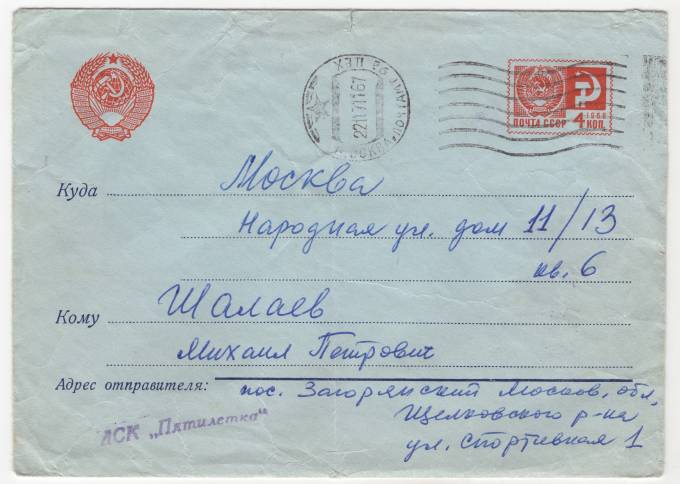 МОСКВА ПОЧТАМТ 93 ЦЕХ
221171167
ПОЧТА СССР
1966
4 КОП.
Куда Москва
Народная ул. дом 11/13
кв. 6
Кому Шалаев
Михаил Петрович
Адрес отправителя: пос. Загорянский Москов. обл,
Щелковского р-на
ДСК „Пятилетка“ ул. Спортивная 1